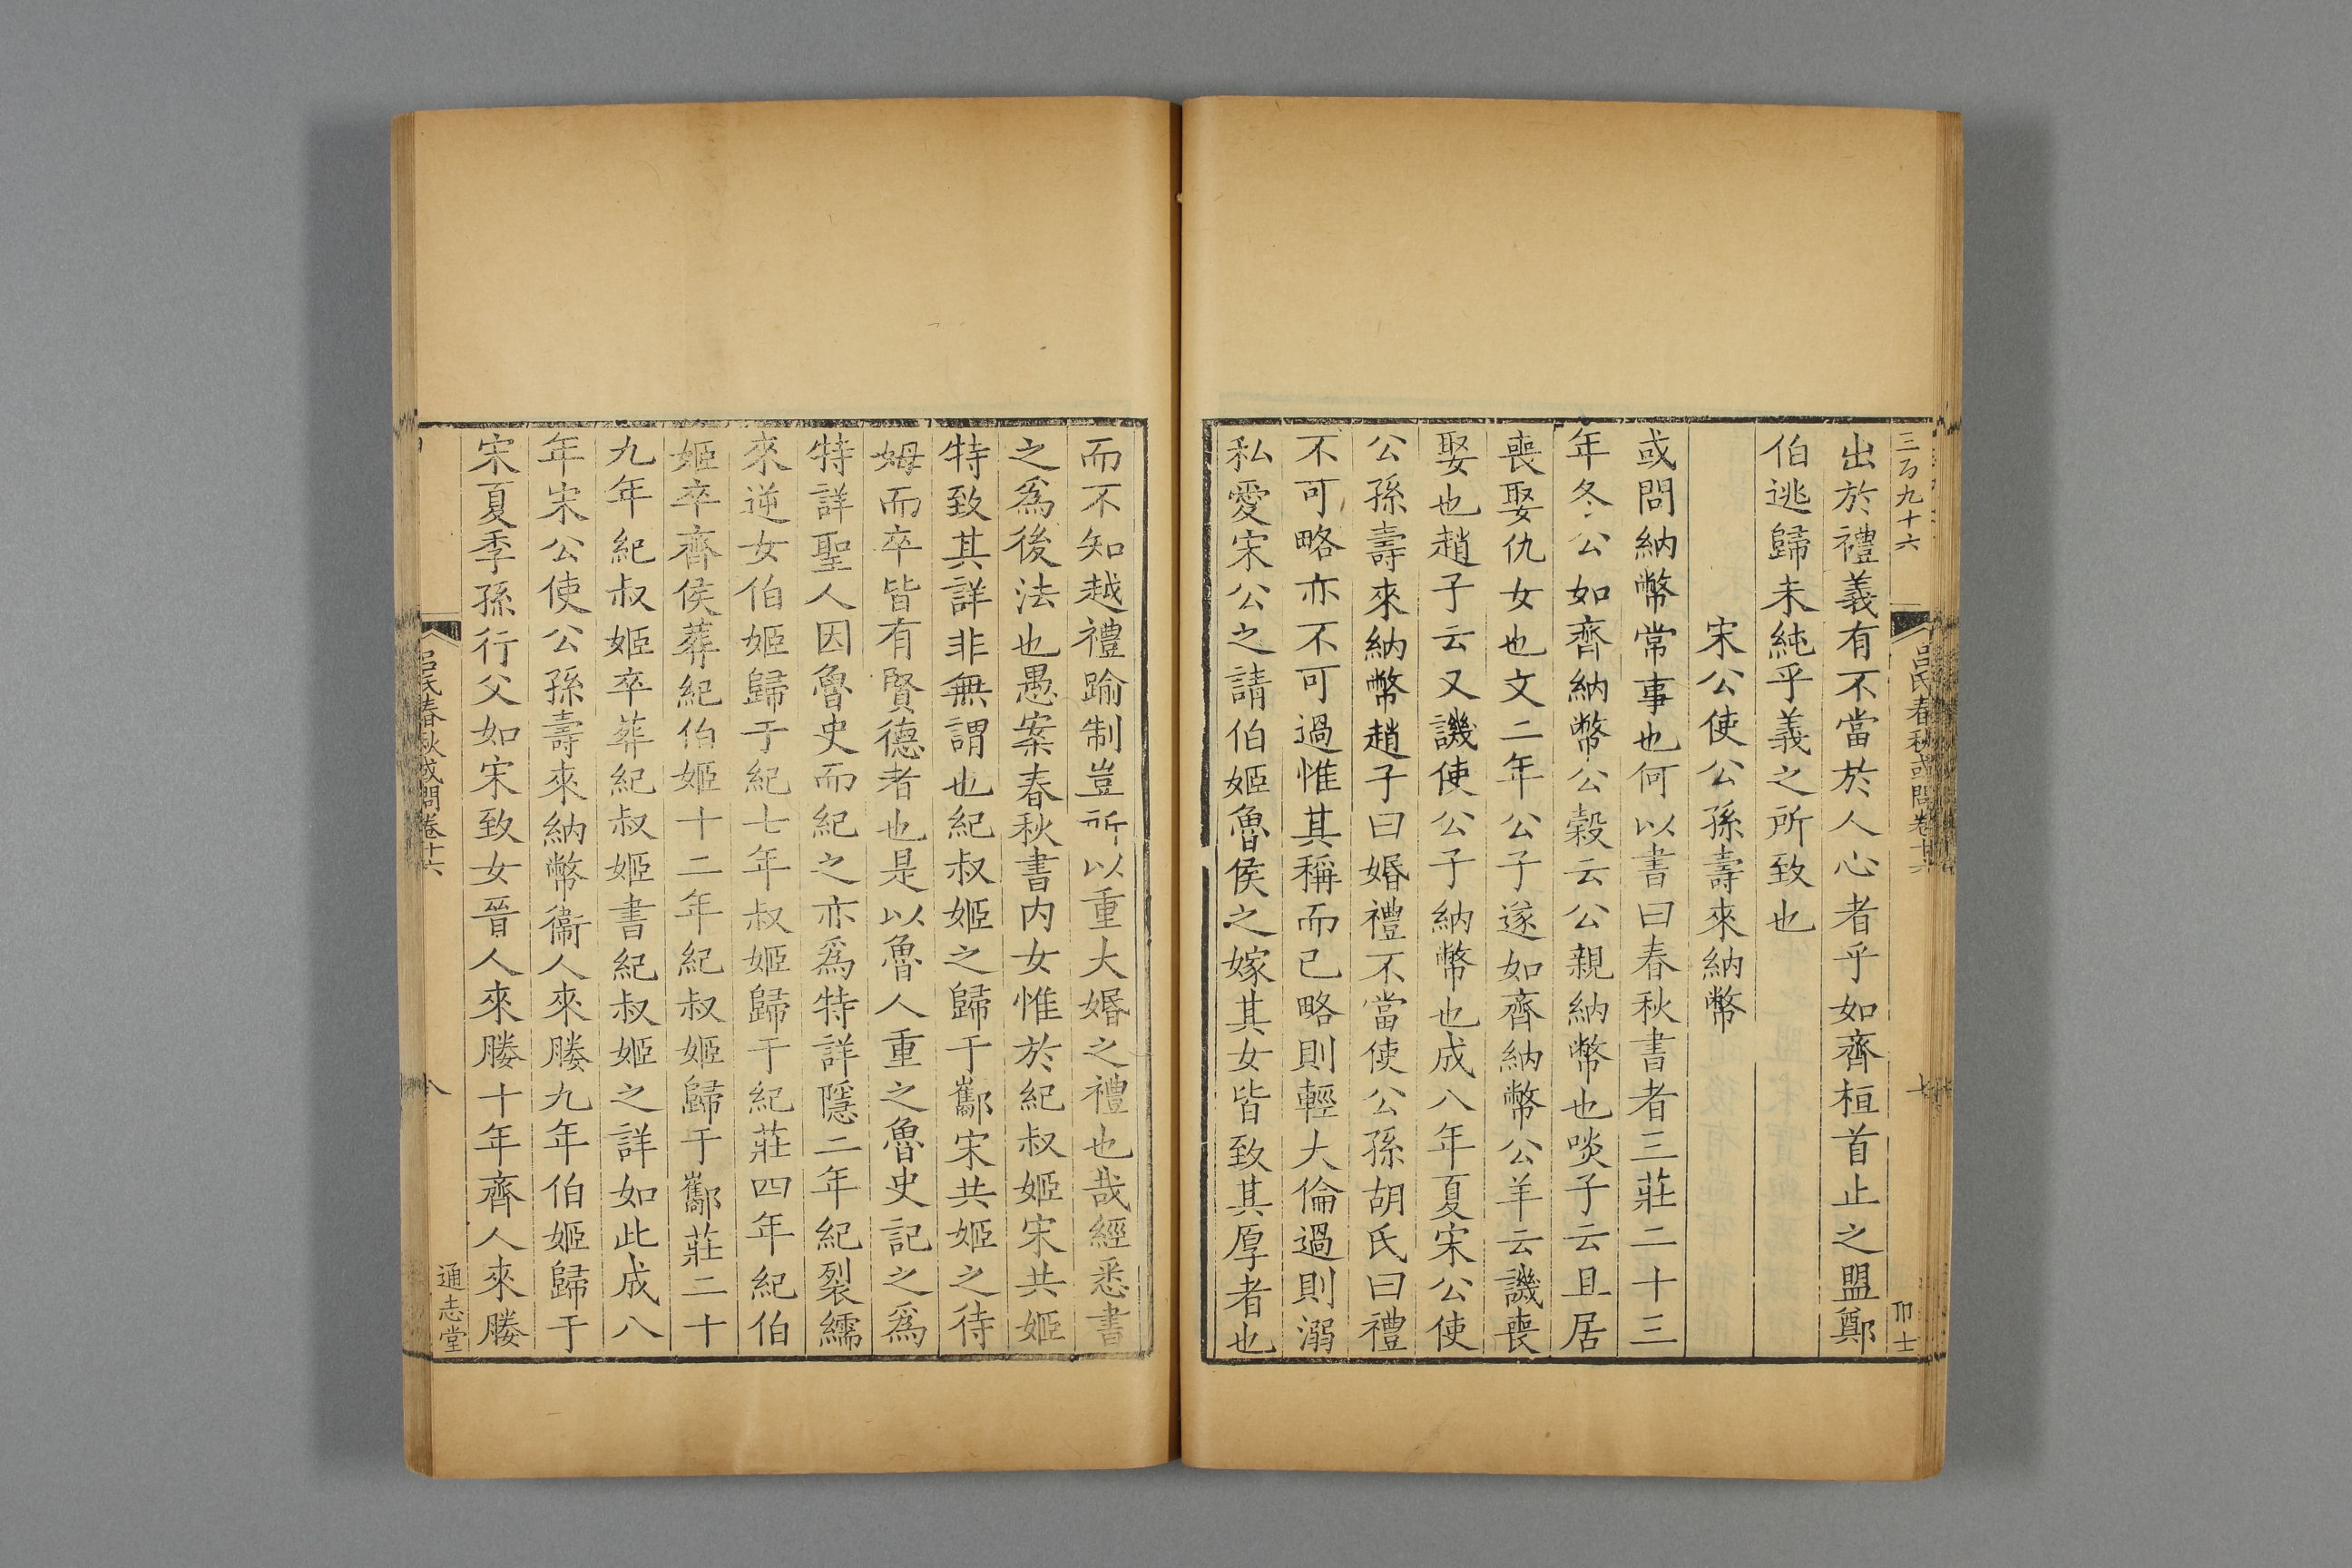 三百九十六
呂氏春秋或問卷十六
十
出於禮義有不當於人心者乎如齊桓首止之盟鄭
伯逃歸未純乎義之所致也
宋公使公孫壽來納幣
或問納幣常事也何以書曰春秋書者三莊二十三
年冬公如齊納幣公穀云公親納幣也啖子云且居
喪娶仇女也文二年公子遂如齊納幣公羊云譏喪
娶也趙子云又譏使公子納幣也成八年夏宋公使
公孫壽來納幣趙子曰婚禮不當使公孫胡氏曰禮
不可略亦不可過惟其稱而已略則輕大倫過則溺
私愛宋公之請伯姬魯侯之嫁其女皆致其厚者也
而不知越禮踰制豈所以重大婚之禮也哉經悉書
之爲後法也愚案春秋書内女惟於紀叔姬宋共姬
特致其詳非無謂也紀叔姬之歸于酅宋共姬之待
姆而卒皆有賢德者也是以魯人重之魯史記之爲
特詳聖人因魯史而紀之亦爲特詳隱二年紀裂繻
來逆女伯姬歸于紀七年叔姬歸于紀莊四年紀伯
姬卒齊侯葬紀伯姬十二年紀叔姬歸于酅莊二十
九年紀叔姬卒葬紀叔姬書紀叔姬之詳如此成八
年宋公使公孫壽來納幣衞人來媵九年伯姬歸于
宋夏季孫行父如宋致女晉人來媵十年齊人來媵
呂氏春秋或問卷十六
八
通志堂